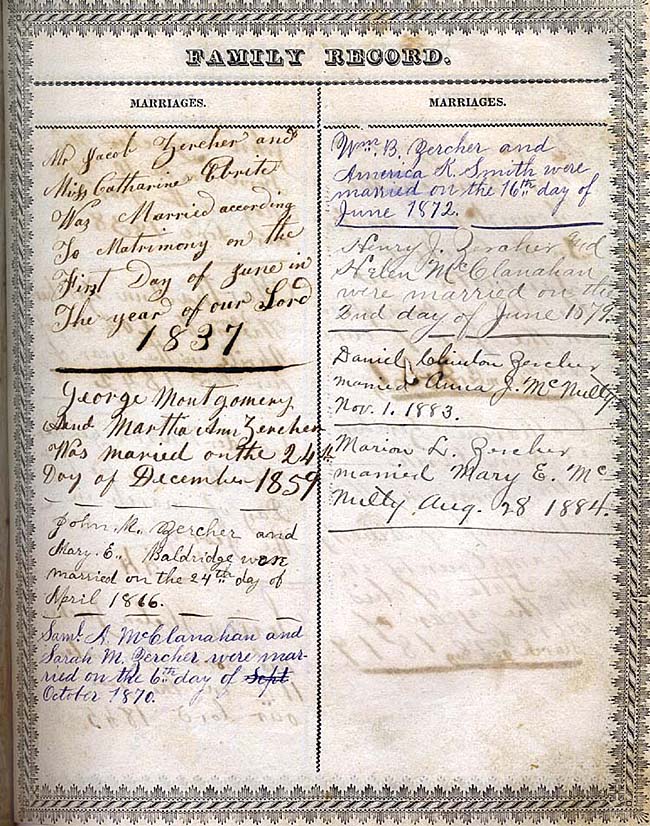 FAMILY RECORD.
MARRIAGES.
Mr Jacob Zercher and
Miss Catharine Ebrite
Was Married according
To Matrimony on the
First Day of June in
The year of our Lord
1837
George Montgomery
and Martha Ann Zercher
Was married on the 24th
Day of December 1859
John M. Zercher and
Mary E. Baldridge were
married on the 24th day of
April 1866.
Saml. A. McClanahan and
Sarah M. Zercher were mar-
ried on the 6th day of Sept
October 1870.
MARRIAGES.
Wm. B. Zercher and
America K. Smith were
married on the 16th day of
June 1872.
Henry J. Zercher and
Helen McClanahan
were married on the
2nd day of June 1879.
Daniel Clinton Zercher
married Anna J. McNulty
Nov. 1. 1883.
Marion L. Zercher
married Mary E. Mc-
Nulty Aug. 28 1884.